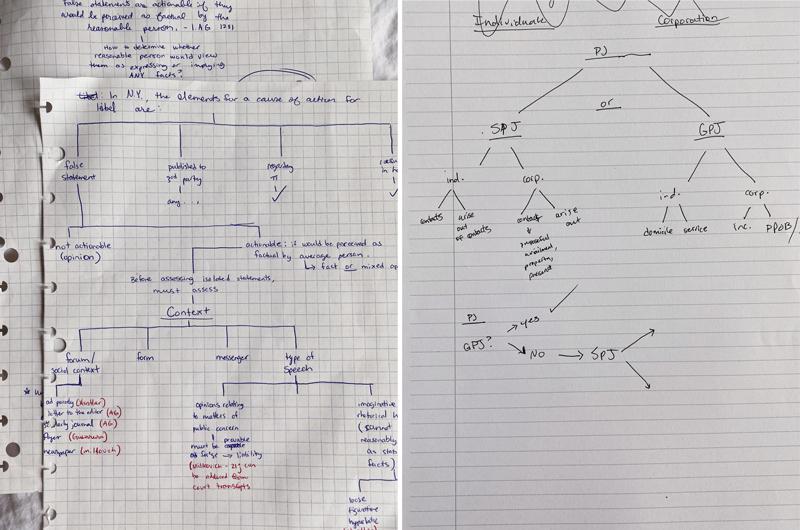 False statements are actionable if they
would be perceived as factual by the
reasonable person. - I.AG 1281
How to determine whether
reasonable person would view
them as expressing or implying
ANY facts?
: In N.Y., the elements for a cause of action for
libel are:
false
statement
published to
3rd party
any...
regarding
π
not actionable
(opinion)
actionable: if would be perceived as
factual by average person.
↳ fact or mixed op
Before assessing isolated statements,
must assess
Context
forum/
social context
form
messenger
type of
speech
ad parody (Hustler)
letter to the editor (AG)
journal (AG)
flyer
newspaper
opinions relating
to matters of
public concern
must be provable
as false → liability
(Milkovich -
be
court transcripts
imaginative
rhetorical h
(cannot
reasonably
as stat
facts)
loose
figurative
hyperbolic
Individuals
Corporation
PJ
or
SPJ
GPJ
ind.
corp.
ind.
corp.
contacts
arise
out
of contacts
contacts
arise
out
property,
domicile
service
inc.
PPOB/
PJ
GPJ?
yes
NO
SPJ